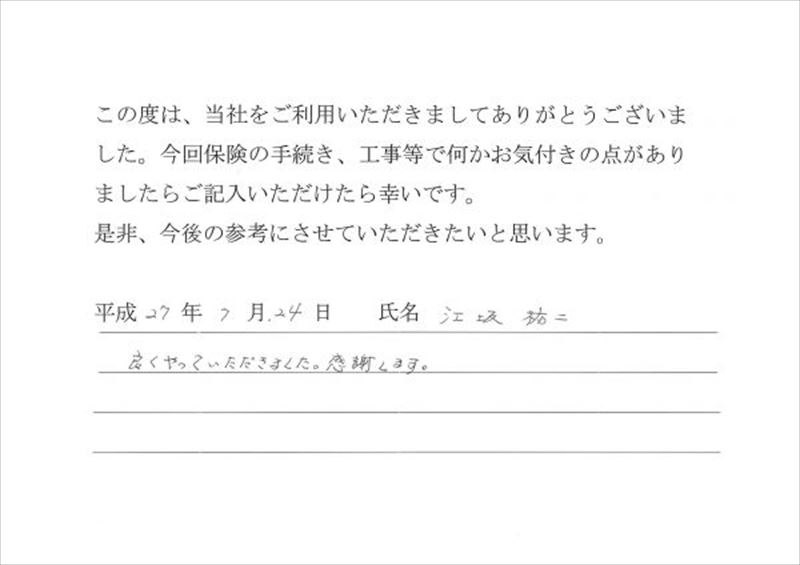 この度は、当社をご利用いただきましてありがとうございま
した。今回保険の手続き、工事等で何かお気付きの点があり
ましたらご記入いただけたら幸いです。
是非、今後の参考にさせていただきたいと思います。
平成 27 年 7 月.24 日 氏名 江坂 祐二
良くやっていただきました。感謝します。